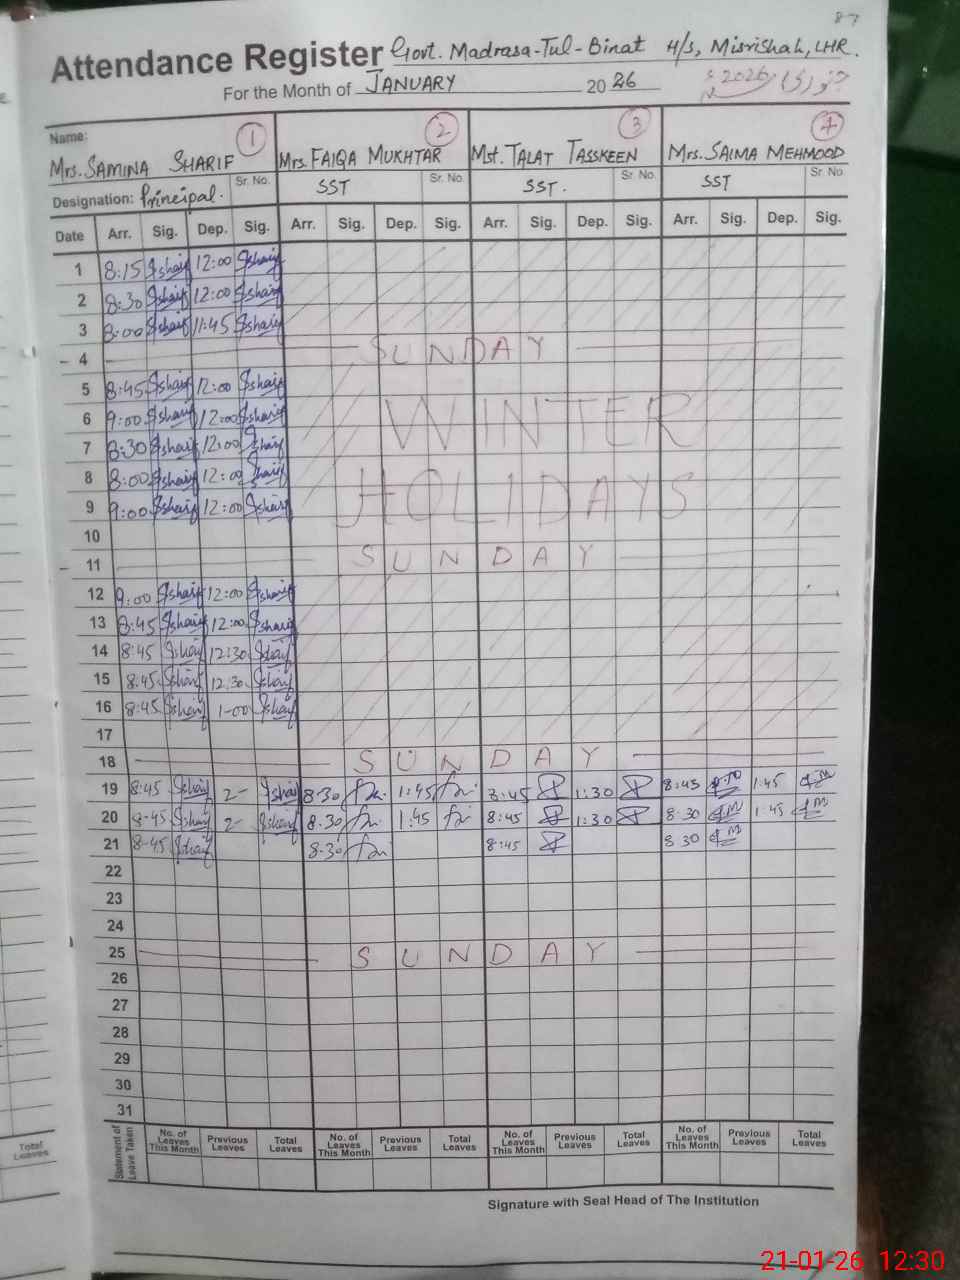 87
Attendance Register Govt. Madrasa-Tul-Binat H/S, Misrishah, LHR.
For the Month of JANUARY 2026 جنوری 2026ء
Name: 1 2 3 4
Mrs. SAMINA SHARIF Mrs. FAIQA MUKHTAR Mst. TALAT TASSKEEN Mrs. SAIMA MEHMOOD
Designation: Principal. Sr. No. SST Sr. No. SST. Sr. No. SST Sr. No.
Date Arr. Sig. Dep. Sig. Arr. Sig. Dep. Sig. Arr. Sig. Dep. Sig. Arr. Sig. Dep. Sig.
1 8:15 Sharif 12:00 Sharif
2 8:30 Sharif 12:00 Sharif
3 8:00 Sharif 11:45 Sharif
4 SUNDAY
5 8:45 Sharif 12:00 Sharif
6 9:00 Sharif 12:00 Sharif WINTER
7 8:30 Sharif 12:00 Sharif
8 8:00 Sharif 12:00 Sharif
9 9:00 Sharif 12:00 Sharif HOLIDAYS
10
11 SUNDAY
12 9:00 Sharif 12:00 Sharif
13 8:45 Sharif 12:00 Sharif
14 8:45 Sharif 12:30 Sharif
15 8:45 Sharif 12:30 Sharif
16 8:45 Sharif 1-00 Sharif
17
18 SUNDAY
19 8:45 Sharif 2- Sharif 8:30 1:45 8:45 1:30 8:45 1:45
20 8-45 Sharif 2- Sharif 8:30 1:45 8:45 1:30 8:30 1:45
21 8-45 Sharif 8:30 8:45 8:30
22
23
24
25 SUNDAY
26
27
28
29
30
31
Statement of Leave Taken No. of Leaves This Month Previous Leaves Total Leaves No. of Leaves This Month Previous Leaves Total Leaves No. of Leaves This Month Previous Leaves Total Leaves No. of Leaves This Month Previous Leaves Total Leaves
Total Leaves
Signature with Seal Head of The Institution
21-01-26 12:30